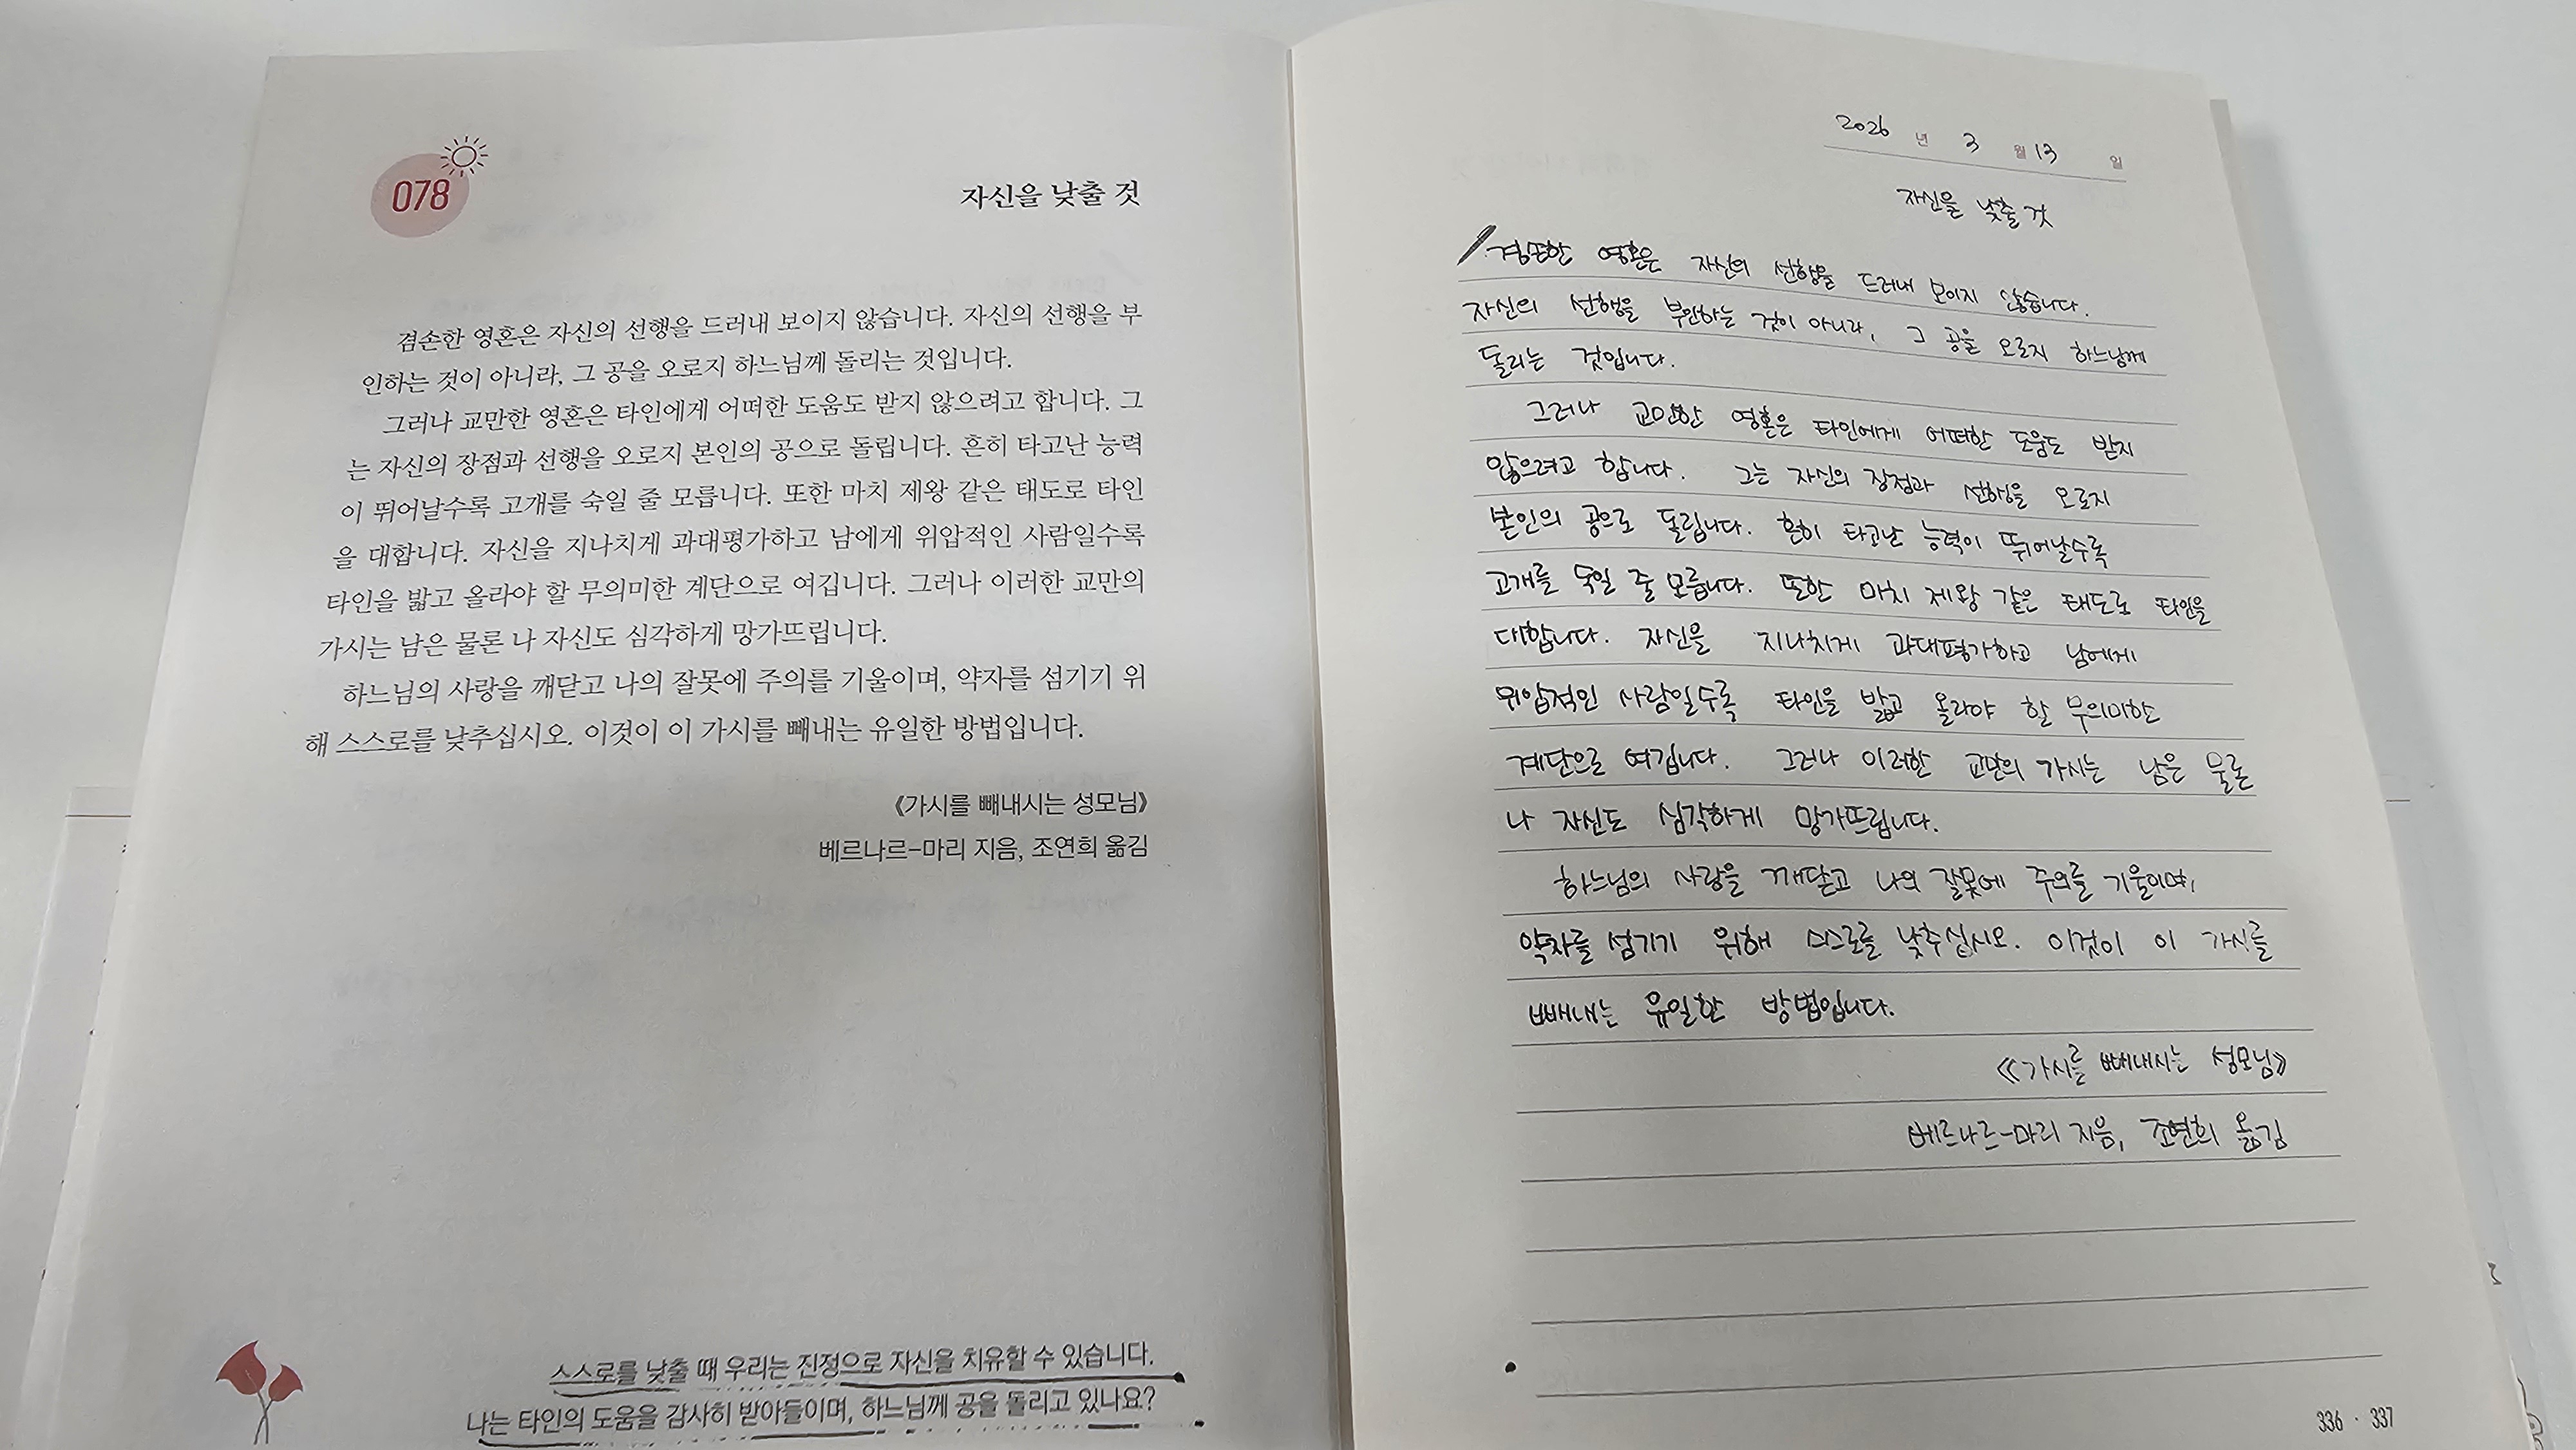 078
자신을 낮출 것
겸손한 영혼은 자신의 선행을 드러내 보이지 않습니다. 자신의 선행을 부
인하는 것이 아니라, 그 공을 오로지 하느님께 돌리는 것입니다.
그러나 교만한 영혼은 타인에게 어떠한 도움도 받지 않으려고 합니다. 그
는 자신의 장점과 선행을 오로지 본인의 공으로 돌립니다. 흔히 타고난 능력
이 뛰어날수록 고개를 숙일 줄 모릅니다. 또한 마치 제왕 같은 태도로 타인
을 대합니다. 자신을 지나치게 과대평가하고 남에게 위압적인 사람일수록
타인을 밟고 올라야 할 무의미한 계단으로 여깁니다. 그러나 이러한 교만의
가시는 남은 물론 나 자신도 심각하게 망가뜨립니다.
하느님의 사랑을 깨닫고 나의 잘못에 주의를 기울이며, 약자를 섬기기 위
해 스스로를 낮추십시오. 이것이 이 가시를 빼내는 유일한 방법입니다.
《가시를 빼내시는 성모님》
베르나르-마리 지음, 조연희 옮김
스스로를 낮출 때 우리는 진정으로 자신을 치유할 수 있습니다.
나는 타인의 도움을 감사히 받아들이며, 하느님께 공을 돌리고 있나요?
2026 년 3 월 13 일
자신을 낮출 것
겸손한 영혼은 자신의 선행을 드러내 보이지 않습니다.
자신의 선행을 부인하는 것이 아니라, 그 공을 오로지 하느님께
돌리는 것입니다.
그러나 교만한 영혼은 타인에게 어떠한 도움도 받지
않으려고 합니다. 그는 자신의 장점과 선행을 오로지
본인의 공으로 돌립니다. 흔히 타고난 능력이 뛰어날수록
고개를 숙일 줄 모릅니다. 또한 마치 제왕 같은 태도로 타인을
대합니다. 자신을 지나치게 과대평가하고 남에게
위압적인 사람일수록 타인을 밟고 올라야 할 무의미한
계단으로 여깁니다. 그러나 이러한 교만의 가시는 남은 물론
나 자신도 심각하게 망가뜨립니다.
하느님의 사랑을 깨닫고 나의 잘못에 주의를 기울이며,
약자를 섬기기 위해 스스로를 낮추십시오. 이것이 이 가시를
빼내는 유일한 방법입니다.
《가시를 빼내시는 성모님》
베르나르-마리 지음, 조연희 옮김
336 · 337